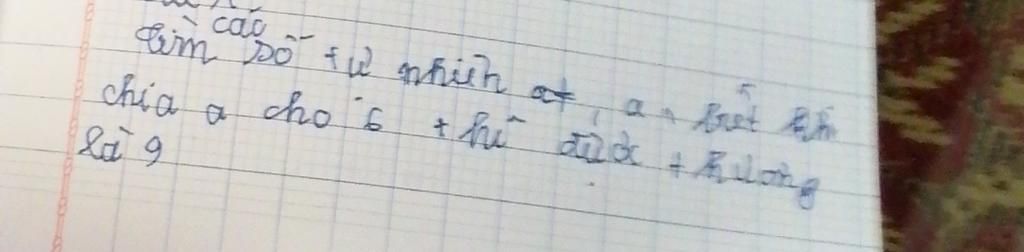 tìm các số tự nhiên a, biết khi
chia a cho 6 thì được thương
là 9